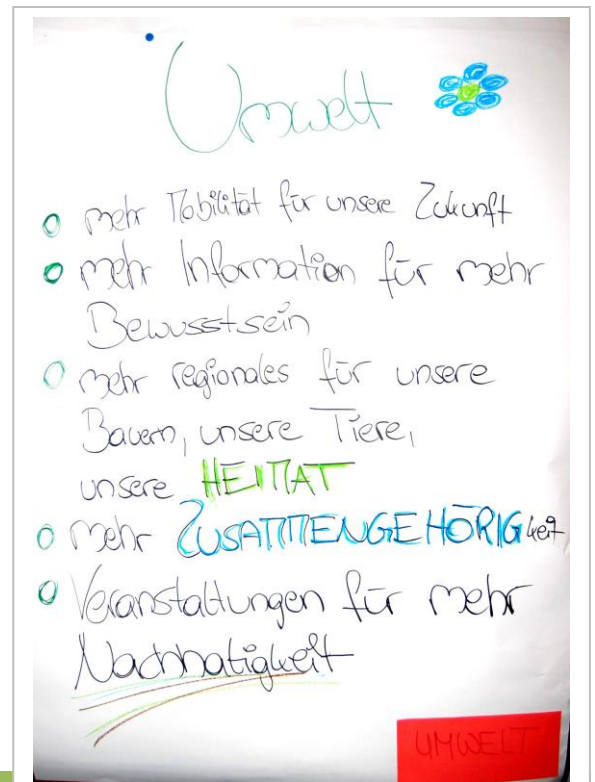 Umwelt
mehr Mobilität für unsere Zukunft
mehr Information für mehr
Bewusstsein
mehr regionales für unsere
Bauern, unsere Tiere,
unsere HEIMAT
mehr ZUSAMMENGEHÖRIGkeit
Veranstaltungen für mehr
Nachhatigkeit
UMWELT